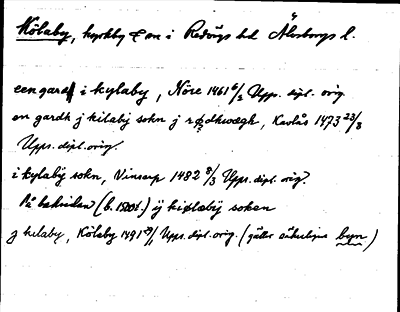 Kölaby, kyrkby & sn i Redvägs hd Älvsborgs l.
een gardh i kylaby, Nöre 1461 6/2 Upps. dipl. orig.
en gardh j kilabÿ sokn j rødhwægh, Kavlås 1473 23/8
Upps. dipl. orig.
i kylabÿ sokn, Vinsarp 1482 8/3 Upps. dipl. orig.
På baksidan (b. 1500t.) ÿ kiølabÿ soken
j kelaby, Kölaby 1491 29/1 Upps. dipl. orig. (gäller säkerligen byn)